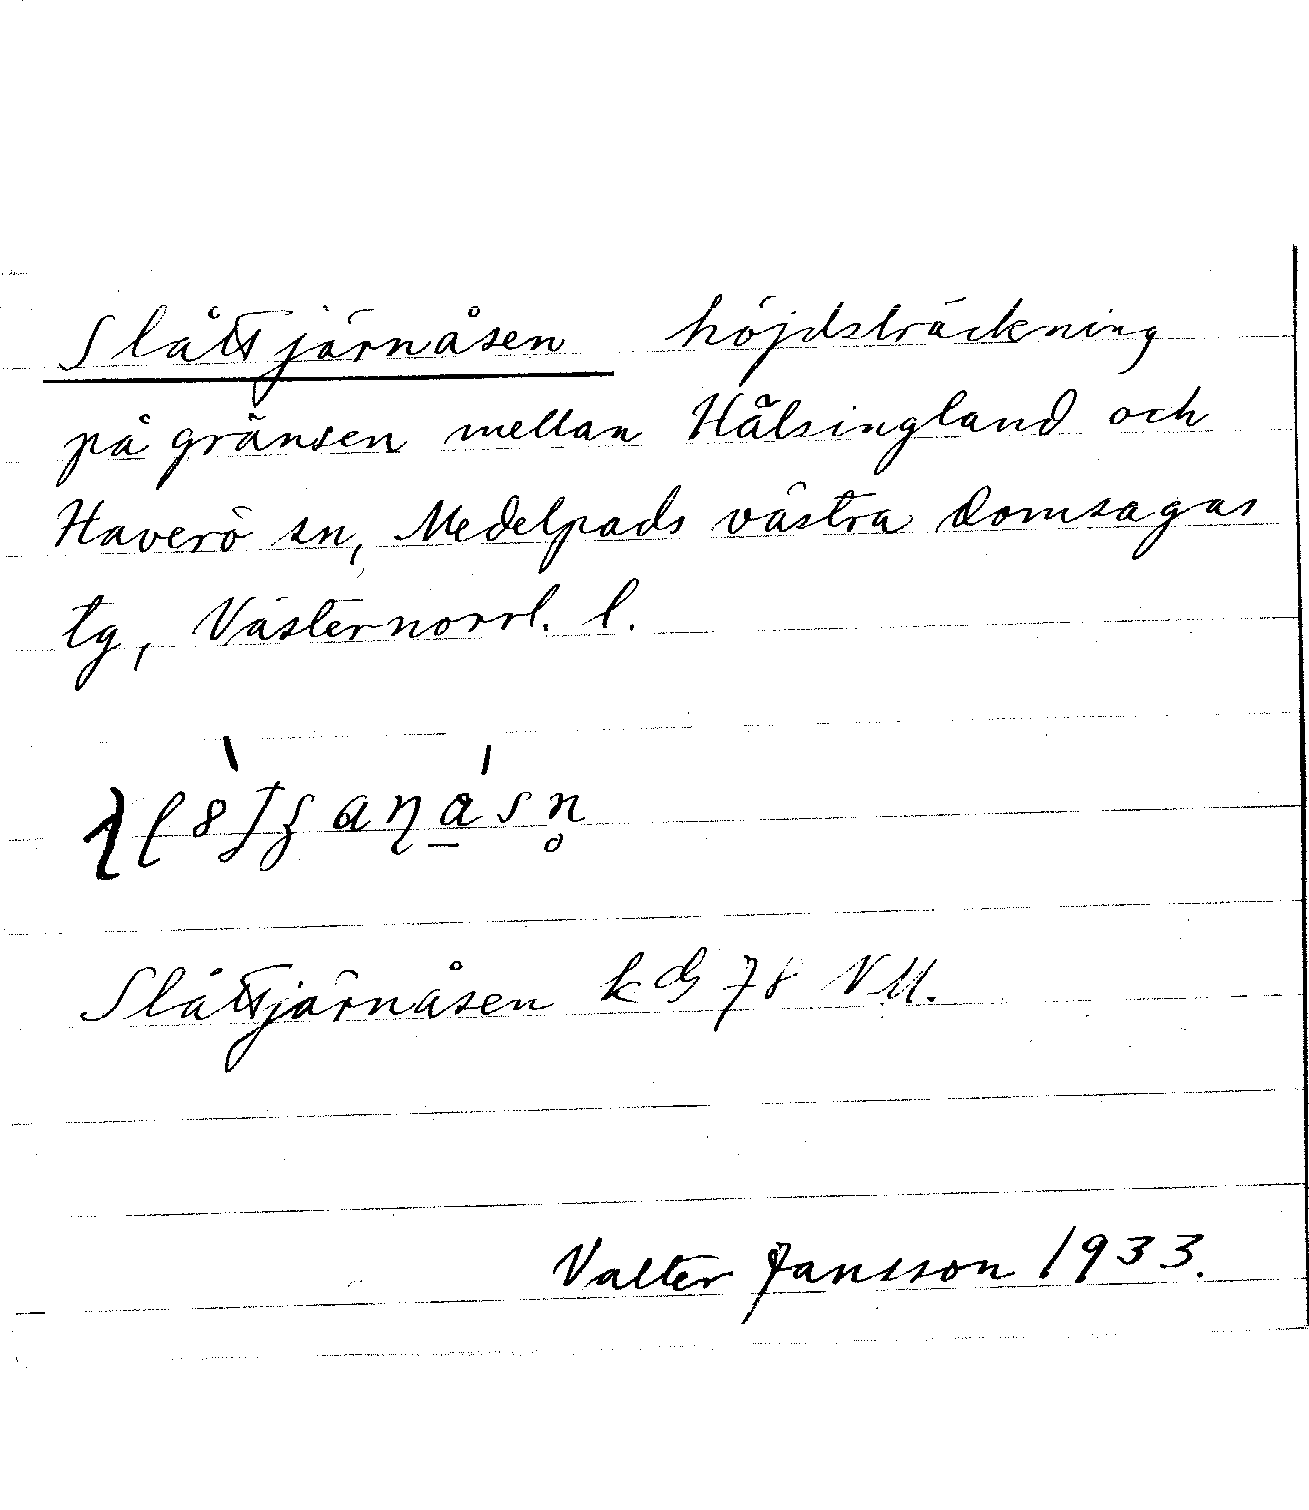 Slåttjärnåsen höjdsträckning
på gränsen mellan Hälsingland och
Haverö sn, Medelpads västra domsagas
tg, Västernorrl. l.
Slåttjärnåsen k 78 NV.
Valter Jansson 1933.